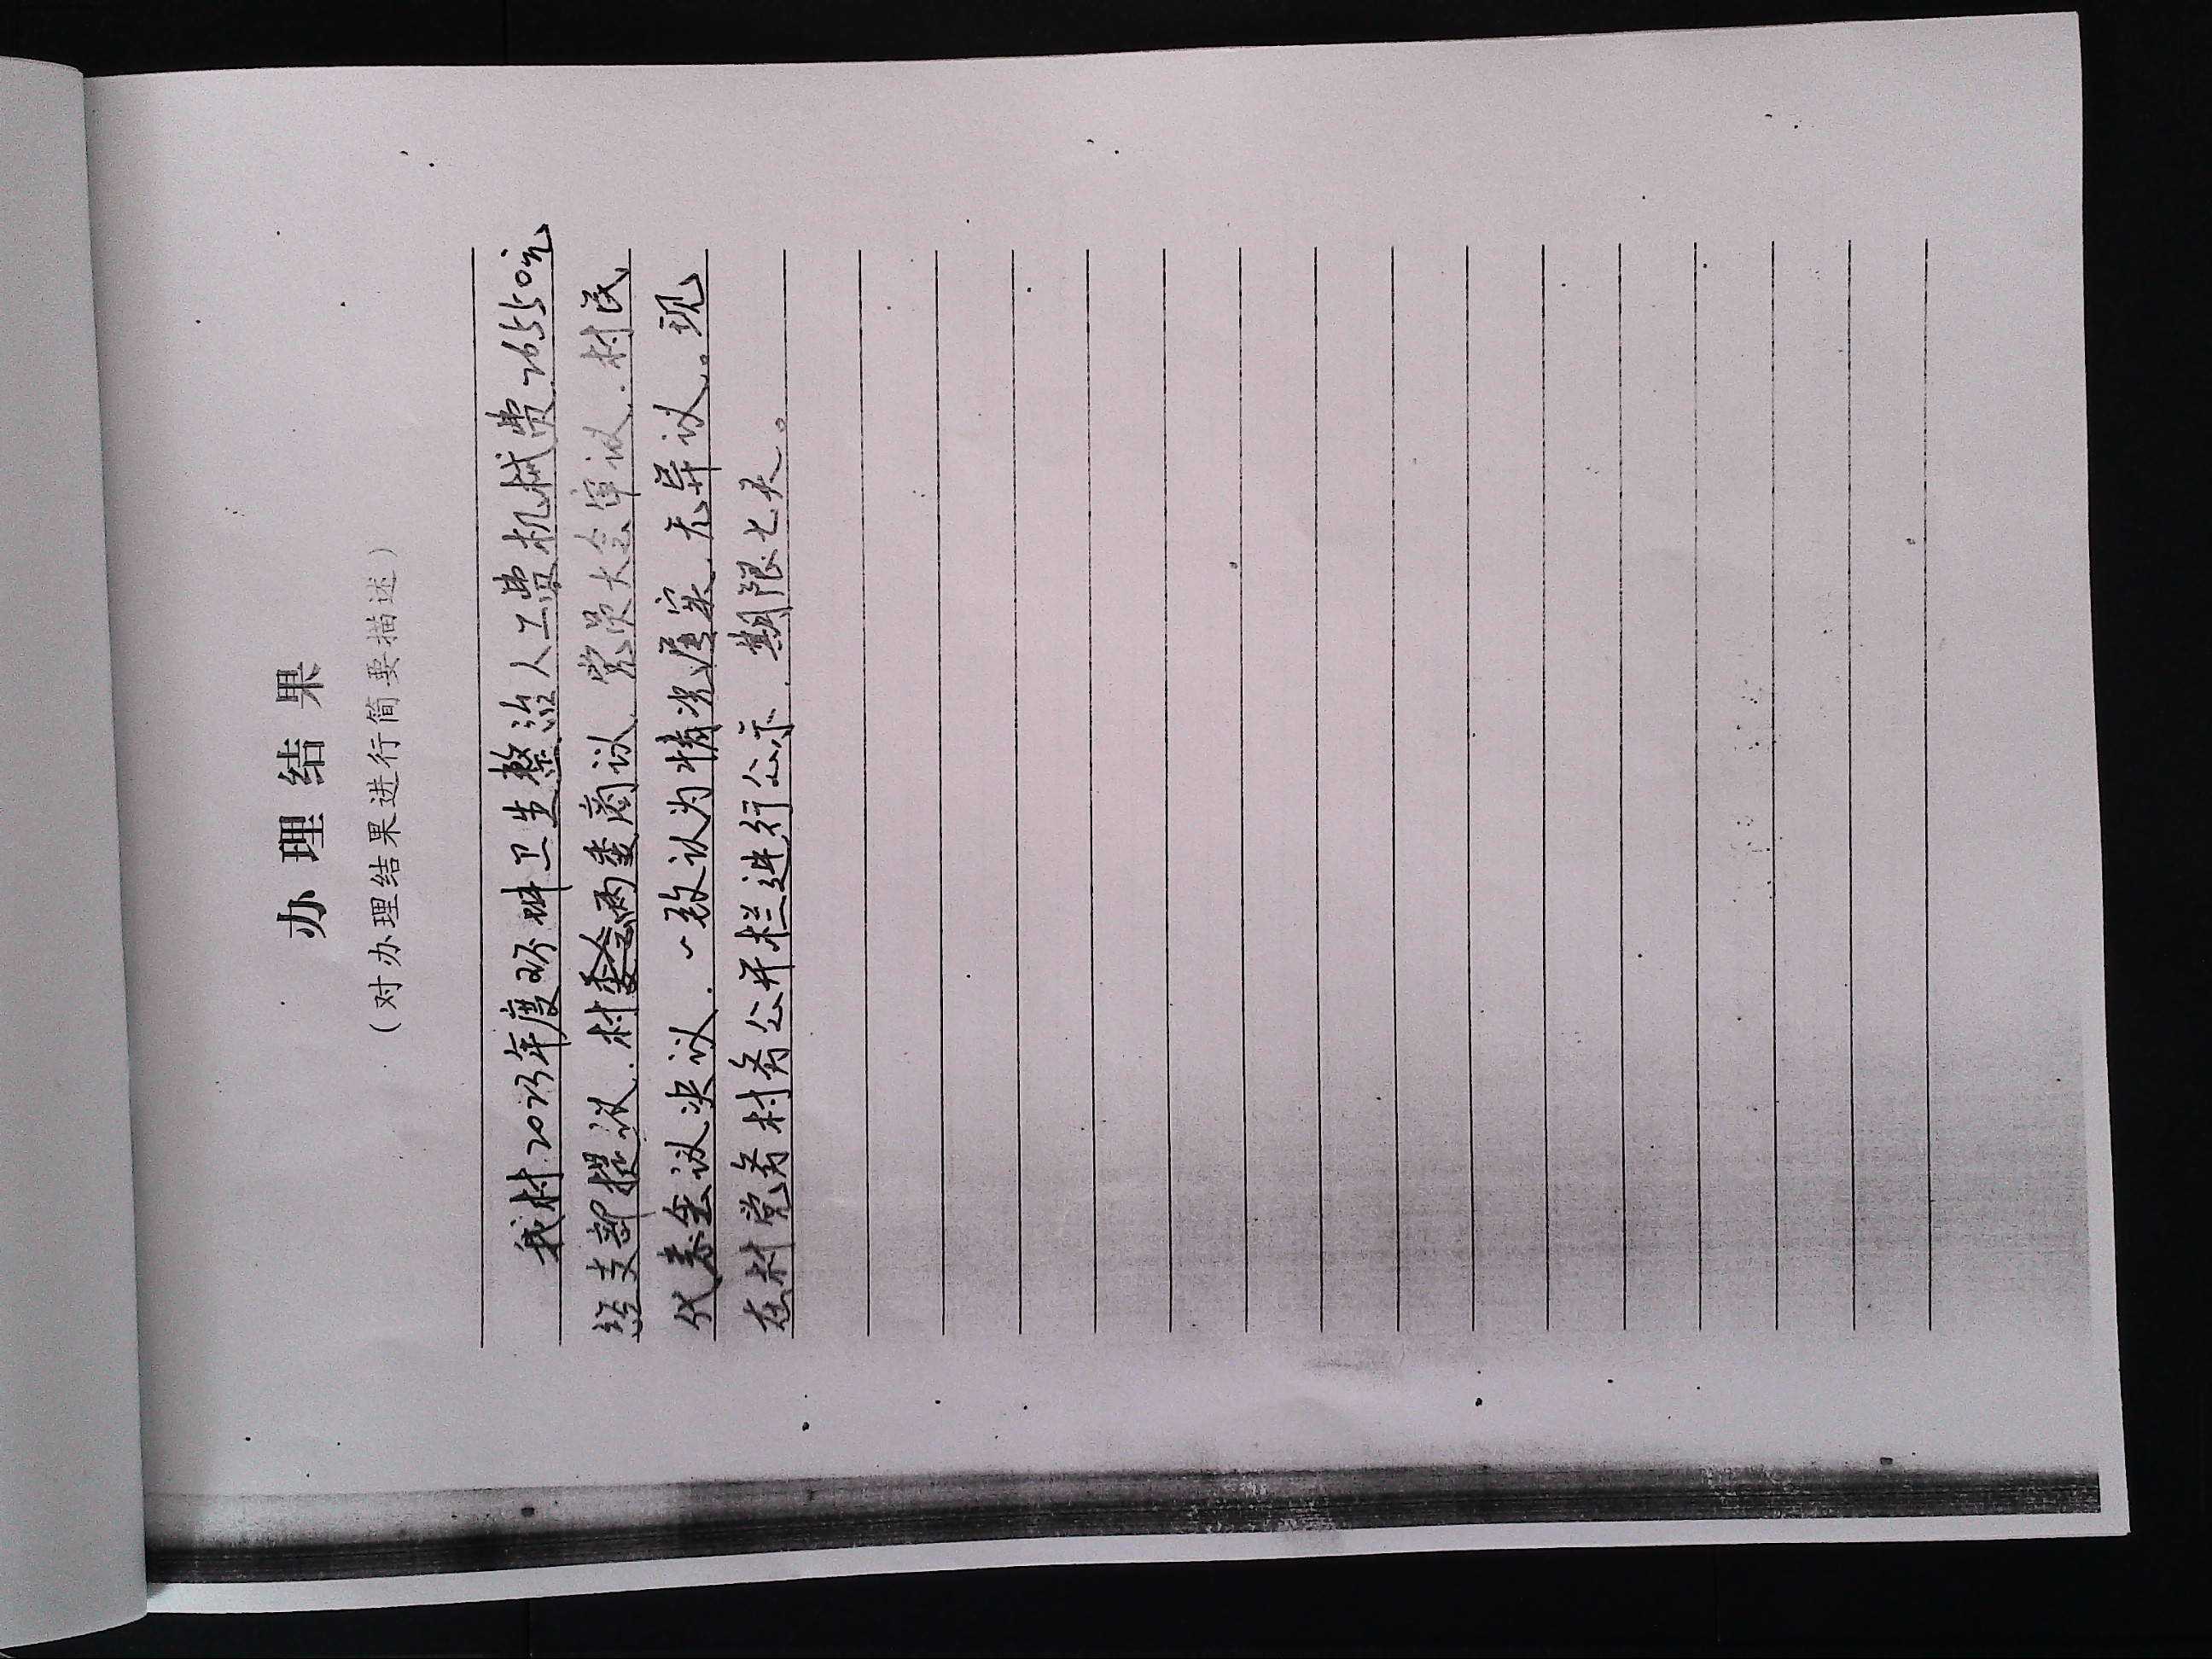 办理结果
(对办理结果进行简要描述)
我村2023年度环卫生整治人工费机械费26550元
经支部提议.村两委商议.党员大会审议.村民
代表会议决议.一致认为情况属实.无异议.现
在村党务村务公开栏进行公示.期限七天。